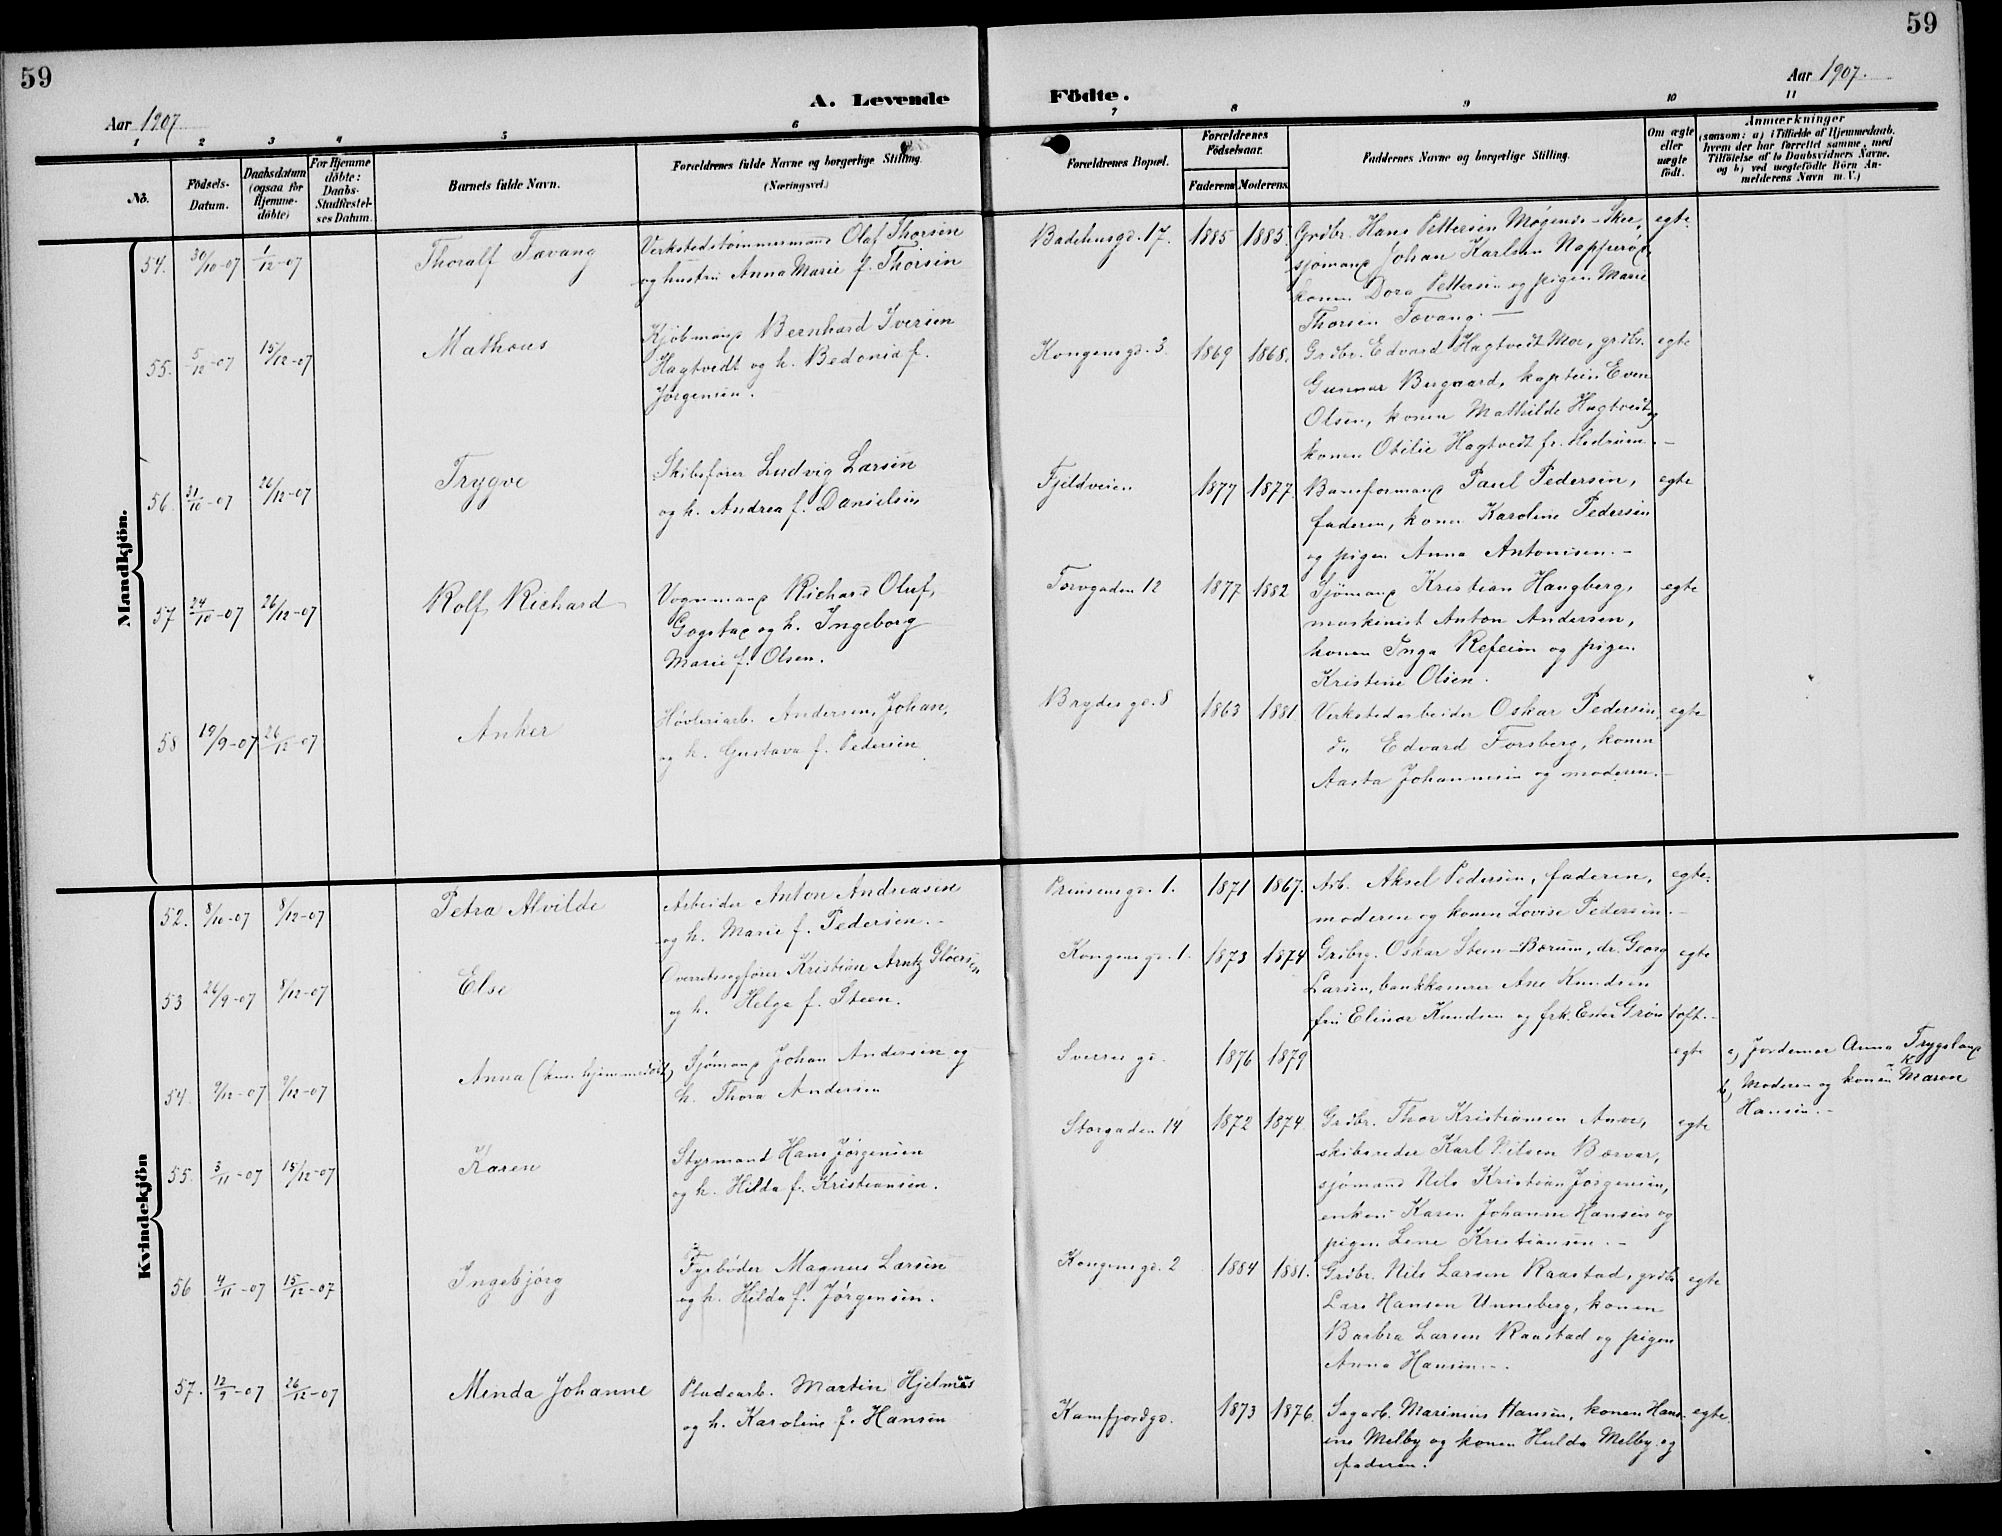 59
59
Aar 1907.
A. Levende Födte.
Aar 1907
1 2 3 4 5 6 7 8 9 10 11
No.
Födsels-Datum.
Daabsdatum (ogsaa for Hjemme-döbte)
For Hjemme döbte: Daabs-Stadfæstel-ses Datum.
Barnets fulde Navn.
Forældrenes fulde Navne og borgerlige Stilling. (Næringsvei.)
Forældrenes Bopæl.
Forældrenes Födselsaar.
Faderens Moderens
Faddernes Navne og borgerlige Stilling.
Om ægte eller uægte födt.
Anmærkninger
(saasom: a) i Tilfælde af Hjemmedaab, hvem der har forrettet samme, med Tilföielse af to Daabsvidners Navne, og b) ved uegtefödte Börn An-melderens Navn m. V.)
Mandkjön.
54. 30/10-07 1/12-07 Thoralf Tævang
Verkstedstømmermand Olaf Thorsen
og hustru Anna Marie f. Thorsen
Badehusgd. 17. 1885 1885.
Grdbr. Hans Pettersen Møgende - Sker, egte.
sjømand Johan Karlsen Napperød
konen Dora Pettersen og pigen Marie
Thorsen Tævang. -
55. 5/12-07 15/12-07 Mathæus
Kjøbmand Bernhard Iversen
Hagtvedt og h. Bedonia f.
Jørgensen.
Kongensgd. 3. 1869 1868.
Grdbr. Edvard Hagtvedt Moe, grdbr. egte
Gunnar Bugaard, kaptein Even
Olsen, konen Mathilde Hagtvedt og
konen Otilie Hagtvedt fr. Hedrum. -
56. 31/10-07 26/12-07 Trygve
Skibsfører Ludvig Larsen
og h. Andrea f. Danielsen
Fjeldveien 1877 1877.
Baneformand Paul Pedersen, egte
faderen, konen Karoline Pedersen
og pigen Anna Antonisen. -
57 24/10-07 26/12-07 Rolf Richard
Vognmand Richard Oluf
Gogstad og h. Ingeborg
Marie f. Olsen.
Torvgaden 12 1877 1882
Sjømand Kristian Haugberg, egte
maskinist Anton Andersen,
konen Inga Refsum og pigen
Kristine Olsen.
58 19/9-07 26/12-07 Anker
Høvleriarb. Andersen, Johan,
og h. Gustava f. Pedersen
Brydesgd. 8 1863 1881
Verkstedarbeider Oskar Pedersen, egte
do Edvard Forsberg, konen
Aasta Johannesen og moderen. -
Kvindekjön
52. 8/10-07 8/12-07 Petra Alvilde
Arbeider Anton Andreasen
og h. Marie f. Pedersen. -
Prinsensgd. 1. 1871 1867.
Arb. Aksel Pedersen, faderen, egte.
moderen og konen Lovise Pedersen. -
53 26/9-07 8/12-07 Else
Overretssagfører Kristian Arntz Gløersen
og h. Helga f. Steen.
Kongensgd. 1. 1873 1874
Grdbrg. Oskar Steen - Bærum, dr. Georg egte
Larsen, bankkaserer Ane Knudsen
fru Elinor Knudsen og frk. Grøntoft. -
54. 9/12-07 9/12-07 Anna (kun hjemmedøbt)
Sjømand Johan Andersen og
h. Thora Andersen
Sverresgd. 1876 1879 egte
a) Jordemor Anna Trygsland
b) Moderen og konen K. Maren
Hansen. -
55. 3/11-07 15/12-07 Karen
Styrmand Hans Jørgensen
og h. Hilda f. Kristiansen.
Storgaden 14 1872 1874
Grdbr. Thor Kristiansen Auve, egte
skibsreder Karl Nilsen Borvar,
sjømand Nils Kristian Jørgensen,
enken Karen Johanne Hansen og
pigen Lene Kristiansen. -
56 4/11-07 15/12-07 Ingebjørg
Fyrbøder Magnus Larsen
og h. Hilda f. Jørgensen.
Kongensgd. 2 1884 1881.
Grdbr. Nils Larsen Raastad, grdbr. egte
Lars Hansen Unneberg, konen
Barbra Larsen Raastad og pigen
Anna Hansen. -
57. 12/9-07 26/12-07 Minda Johanne
Pladearb. Martin Hjelmaas
og h. Karoline f. Hansen
Kamfjordgd. 1873 1876.
Sagarb. Marinius Hansen, konen Han- egte
ine Melby og konen Hulda Melby og
faderen.